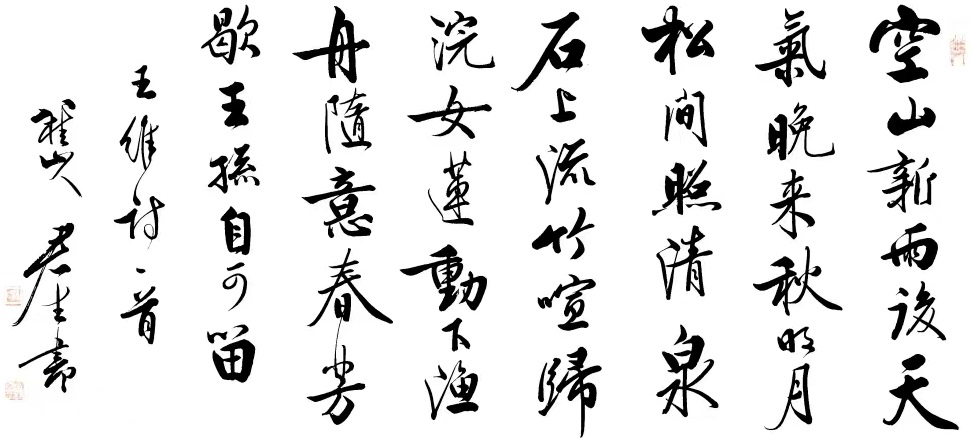 空山新雨後天
氣晚来秋明月
松間照清泉
石上流竹喧歸
浣女蓮動下漁
舟隨意春芳
歇王孫自可留
王維詩一首
山人君生書